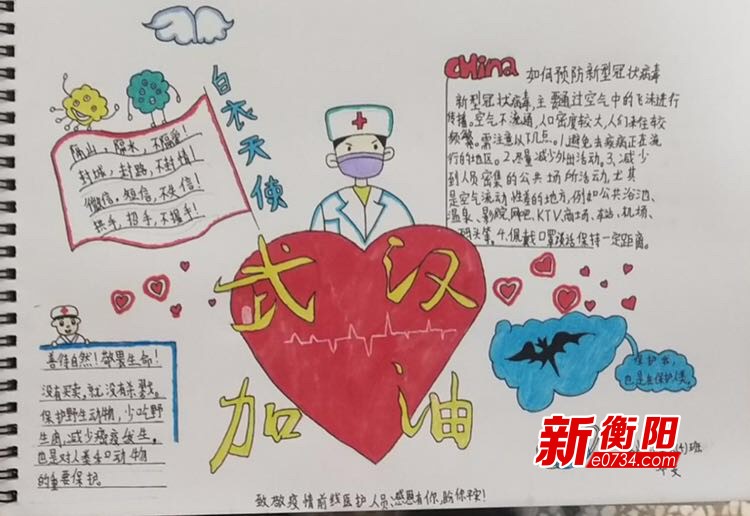 白衣天使
隔山,隔水,不隔爱!
封城,封路,不封情!
微信,短信,不失信!
拱手,招手,不握手!
China 如何预防新型冠状病毒
新型冠状病毒,主要通过空气中的飞沫进行
传播。空气不流通,人口密度较大,人们来往较
频繁。需注意以下几点。1.避免去疾病正在流
行的地区。2.尽量减少外出活动。3.减少
到人员密集的公共场所活动,尤其
是空气流动性差的地方,例如公共浴池、
温泉、影院、网吧、KTV、商场、车站、机场、
码头等。4.佩戴口罩 保持一定距离。
武汉
加油
善待自然!敬畏生命!
没有买卖,就没有杀戮。
保护野生动物,少吃野
生肉,减少瘟疫发生。
也是对人类和动物
的重要保护。
保护我,
也是在保护人类。
新衡阳
e0734.com
班
致敬疫情前线医护人员:感恩有你,盼你平安!